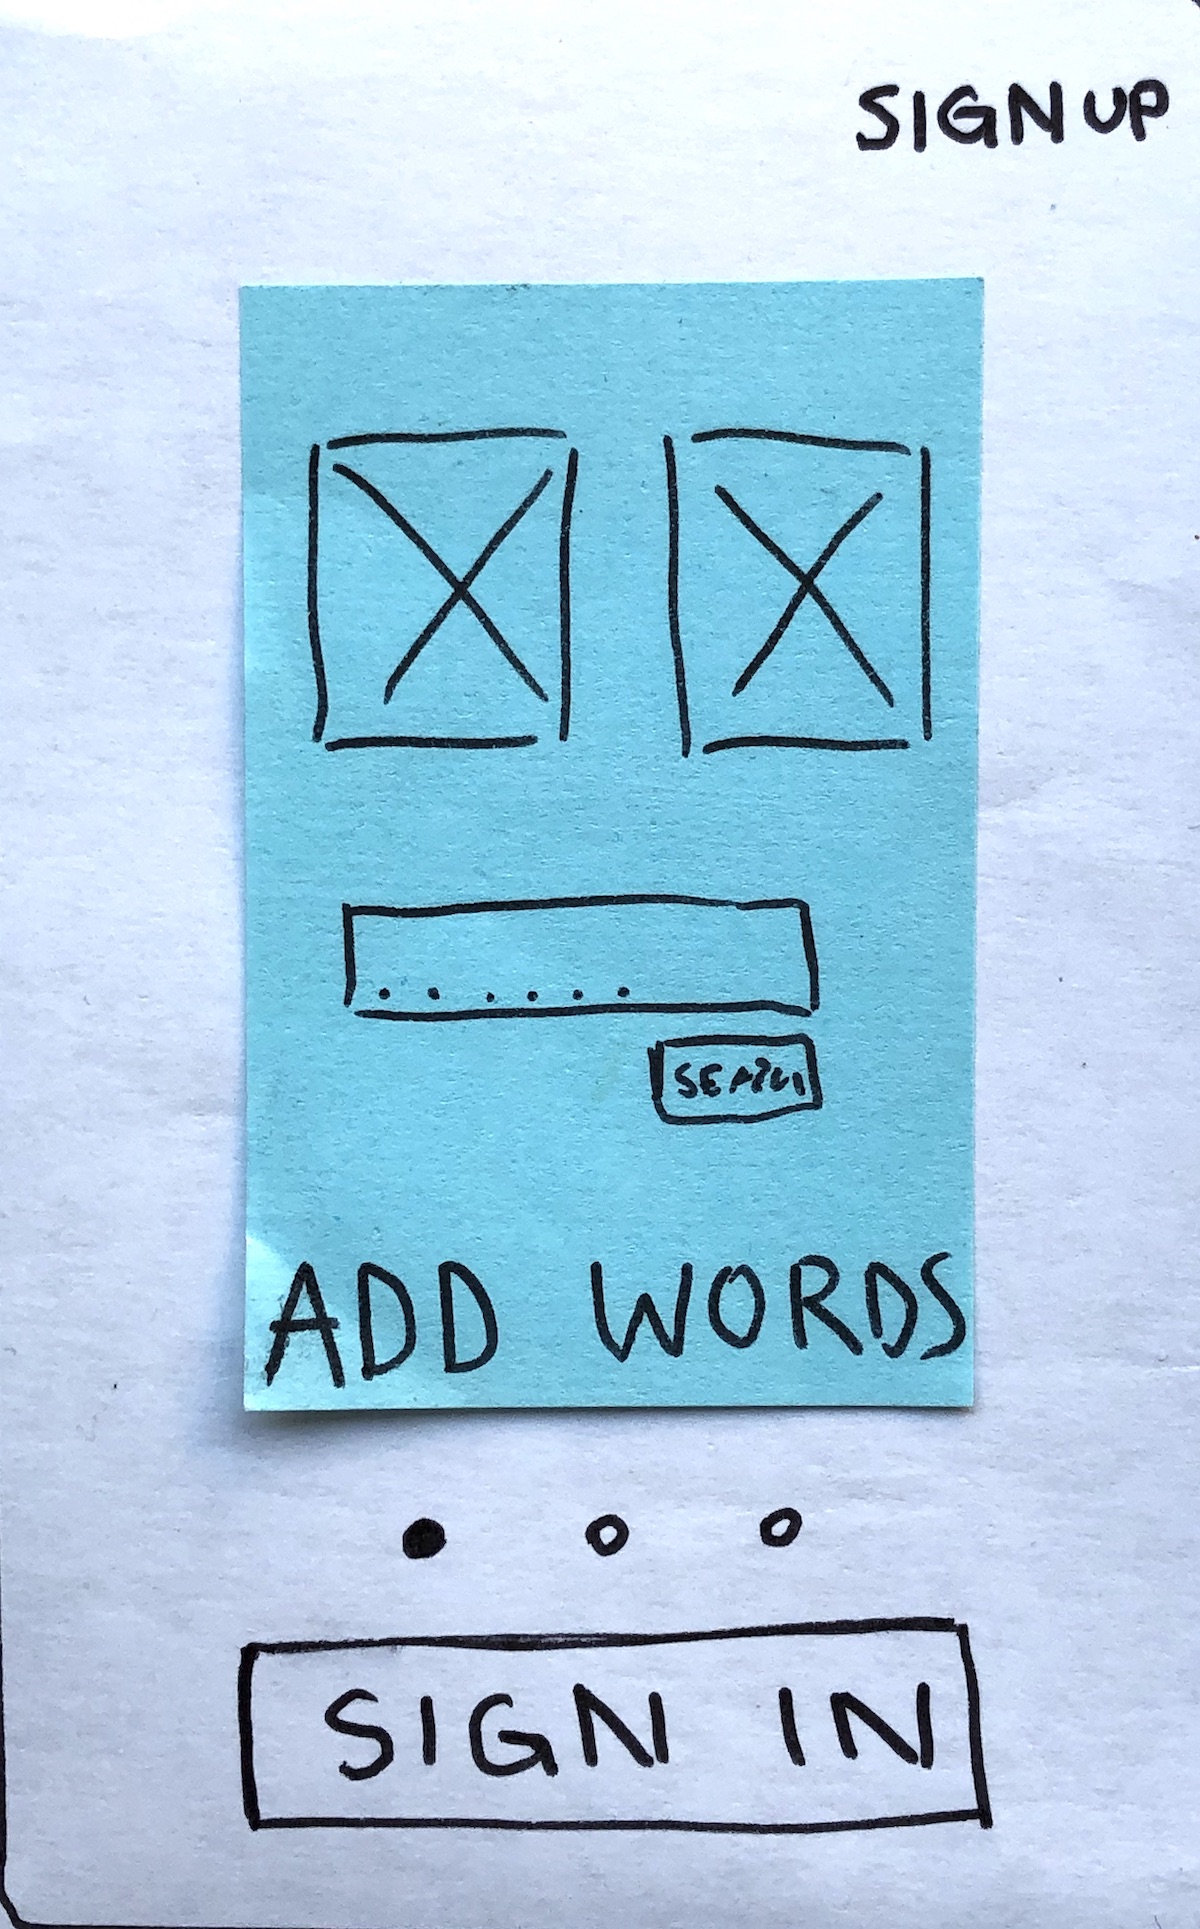 SIGN UP
SEARCH
ADD WORDS
SIGN IN